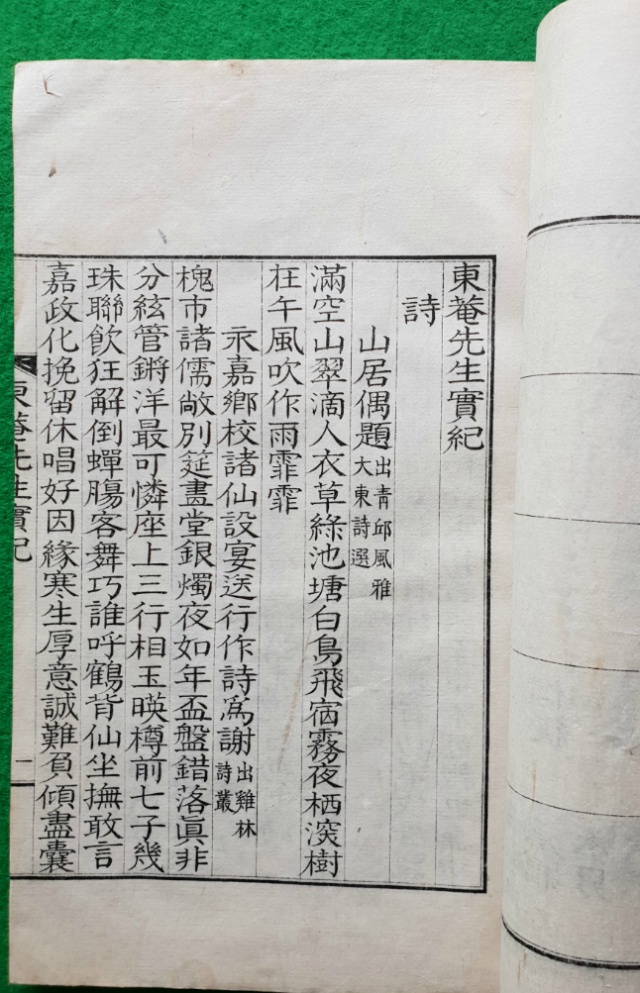 東菴先生實紀
詩
山居偶題 出青邱風雅
大東詩選
滿空山翠滴人衣草綠池塘白鳥飛宿霧夜栖深樹
在午風吹作雨霏霏
永嘉鄉校諸仙設宴送行作詩爲謝 出雞林
詩叢
槐市諸儒敞別筵畫堂銀燭夜如年盃盤錯落眞非
分絃管鏘洋最可憐座上三行相玉暎樽前七子幾
珠聯飮狂解倒蟬膓客舞巧誰呼鶴背仙坐撫敢言
嘉政化挽留休唱好因緣寒生厚意誠難負傾盡囊
東菴先生實紀
一